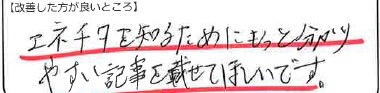 【改善した方が良いところ】
エネチタを知るためにもっと分かり
やすい記事を載せてほしいです。